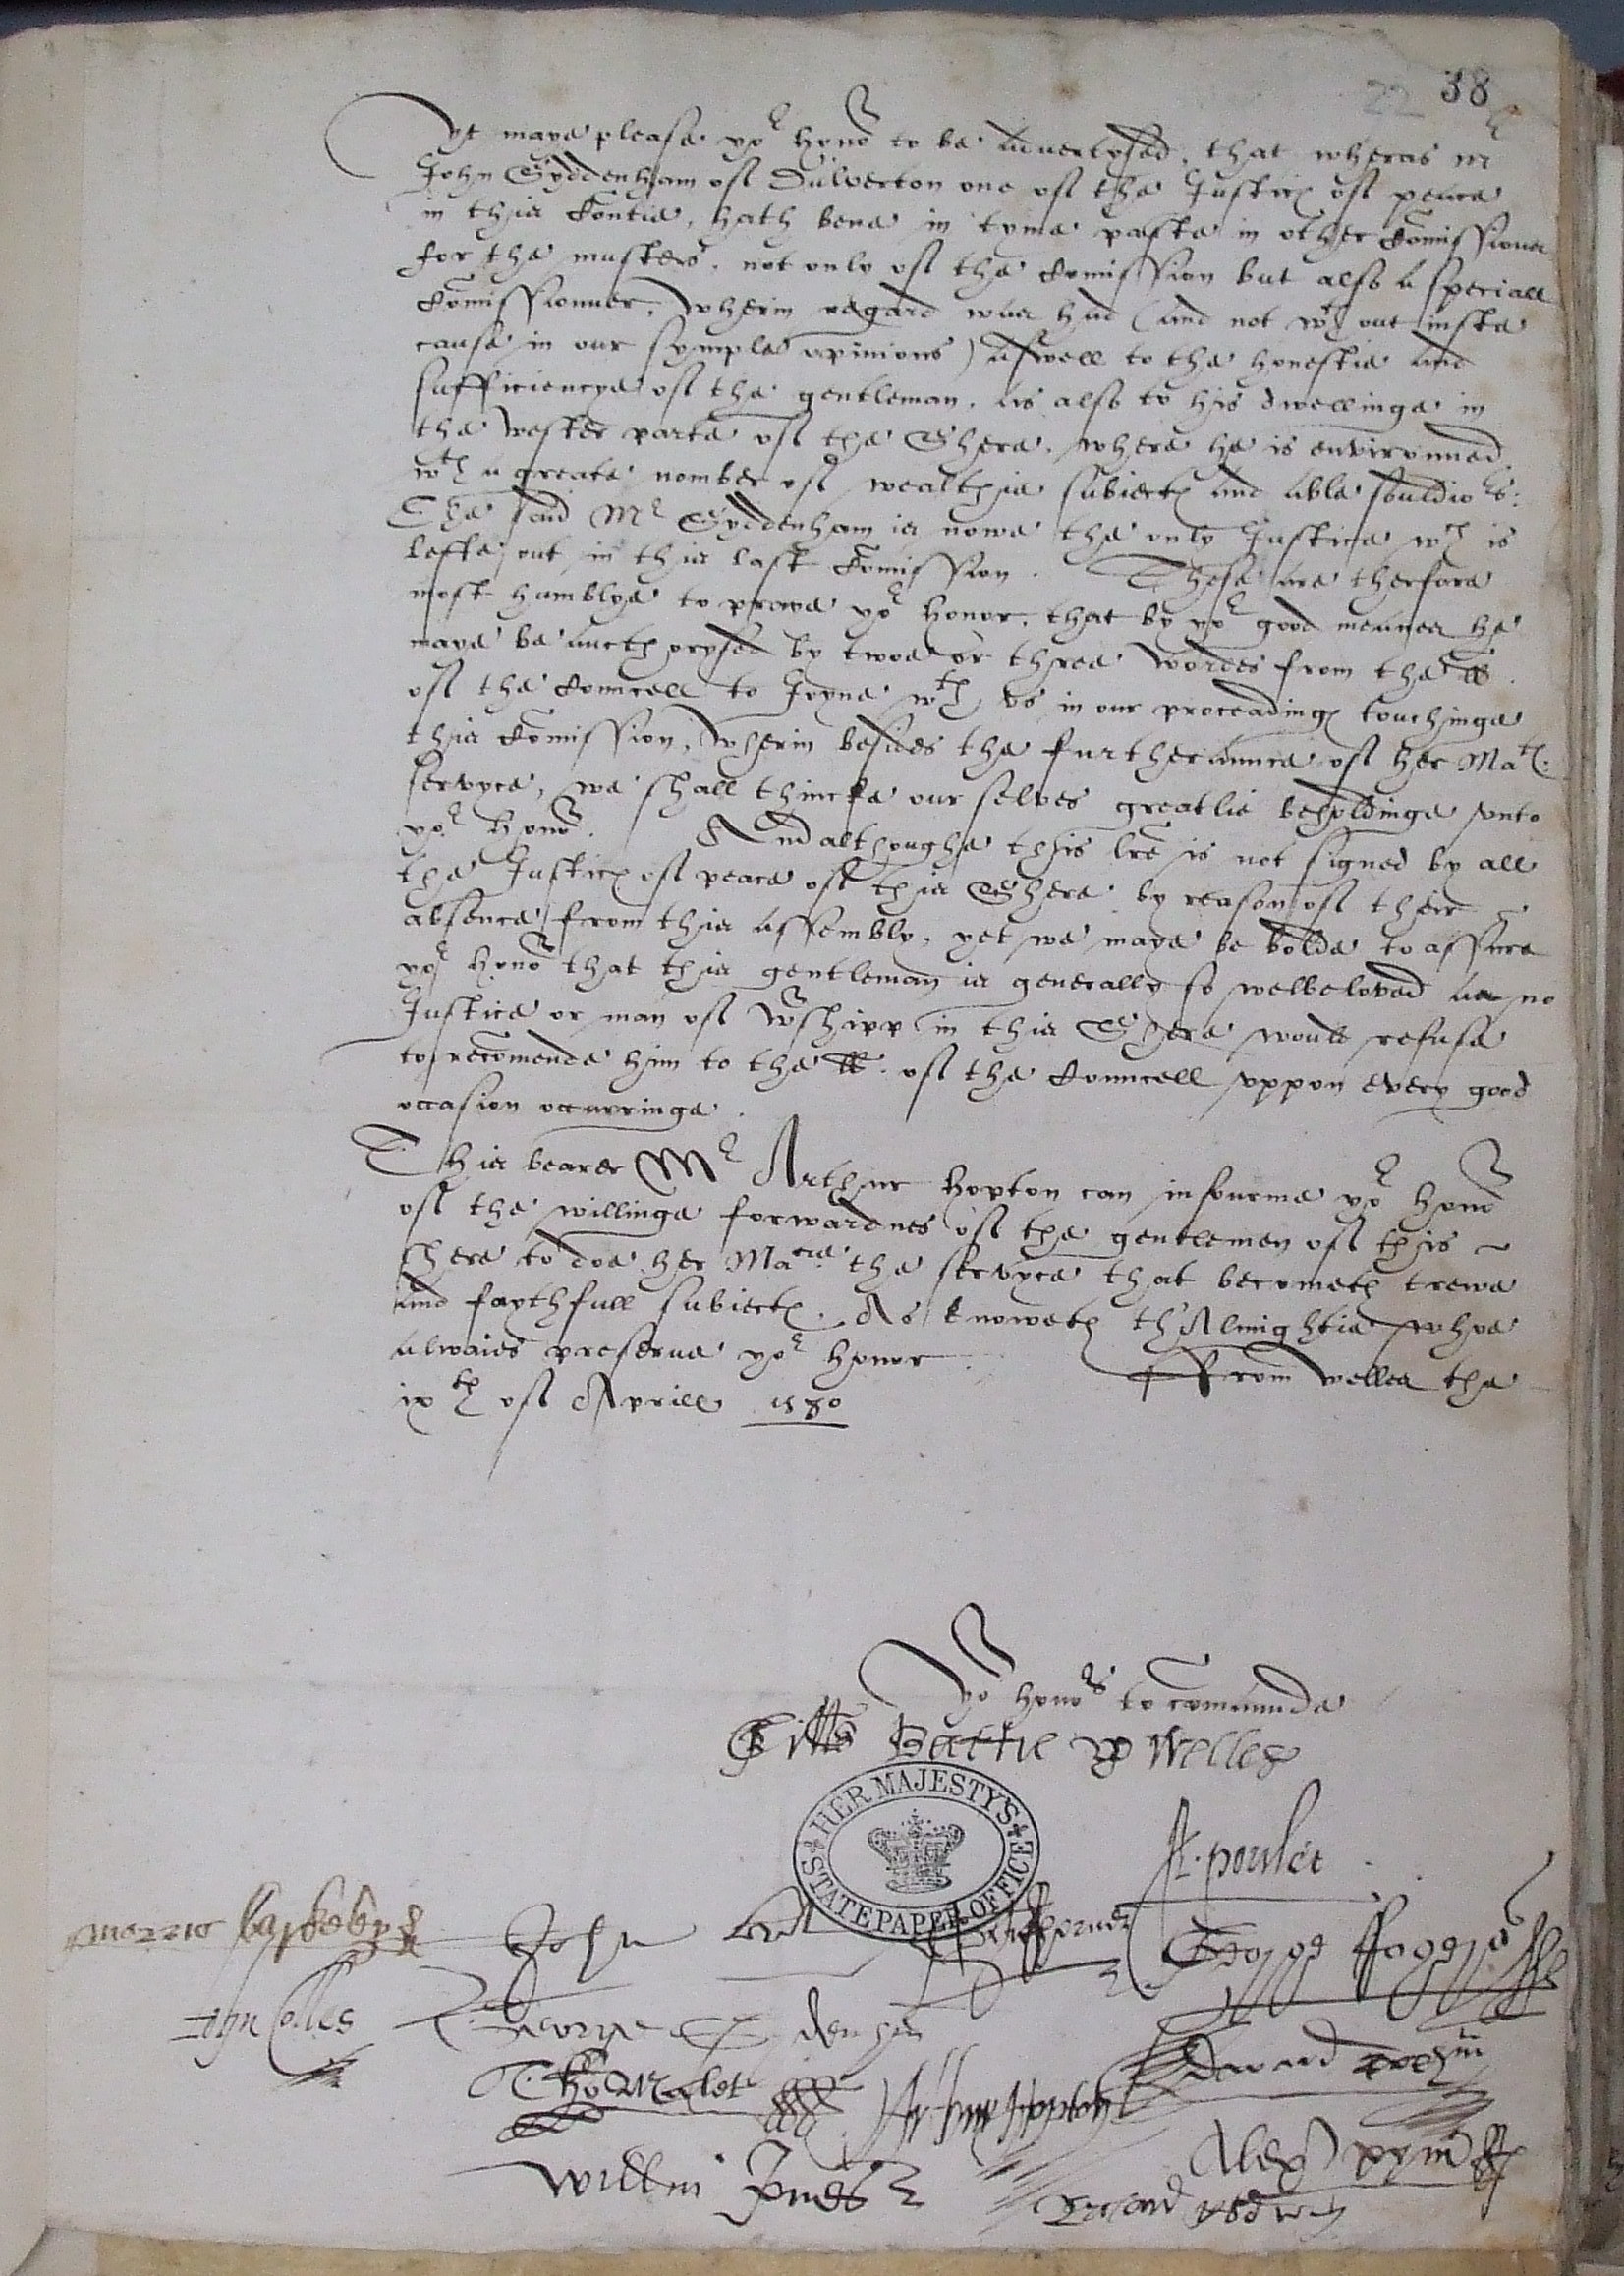 22 38
yt maye please yor honor to be advertysed, that wheras mr
John Syddenham of Dulverton one of the Justices of peace
in this Contie, hath bene in tyme paste in other Comissions
for the musters, not only of the Comission but also a speciall
Comissionner, Wherin regard was had (and not wth out juste
cause in our symple opinions) aswell to the honestie and
sufficiencye of the gentleman, as also to his dwellinge in
the wester parte of the Shere, where he is environned
wth a greate nomber of wealthie subiectes and able souldiors:
The said Mr Syddenham is nowe the only Justice wch is
lefte out in this last Comission. These are therfore
most humblye to praye yor honor, that by yor good meanes he
maye be aucthorysed by twoe or three wordes from the ll.
of the Councell to Joyne wth us in our proceadinges touchinge
this Comission, Wherin besides the furtheraunce of her Mates.
servyce, we shall thincke our selves greatlie beholdinge unto
yor honor. And althoughe this lre is not signed by all
the Justices of peace of this Shere by reason of their
absence from this assembly, yet we maye be bolde to assure
yor honor that this gentleman is generally so welbeloved as no
Justice or man of wrshipp in this Shere would refuse
to recomende him to the ll. of the Councell uppon every good
occasion occurringe.
This bearer Mr Arthur Hopton can infourme yor honor
of the willinge forwardnes of the gentlemen of this
shere to doe her Matie the servyce that becometh trewe
and faythfull subiectes. As knoweth th'Almightie whoe
alwaies preserve yor honor. From Welles the
ixth of Aprill 1580
Yor honors to commaunde
Bathe & Welles
HER MAJESTY'S STATE PAPER OFFICE
A. poulet
morrice barkeley John George
John Colles George Sydenham
Tho Malet Arthur Hopton Edward
Willm Jones Alex pym